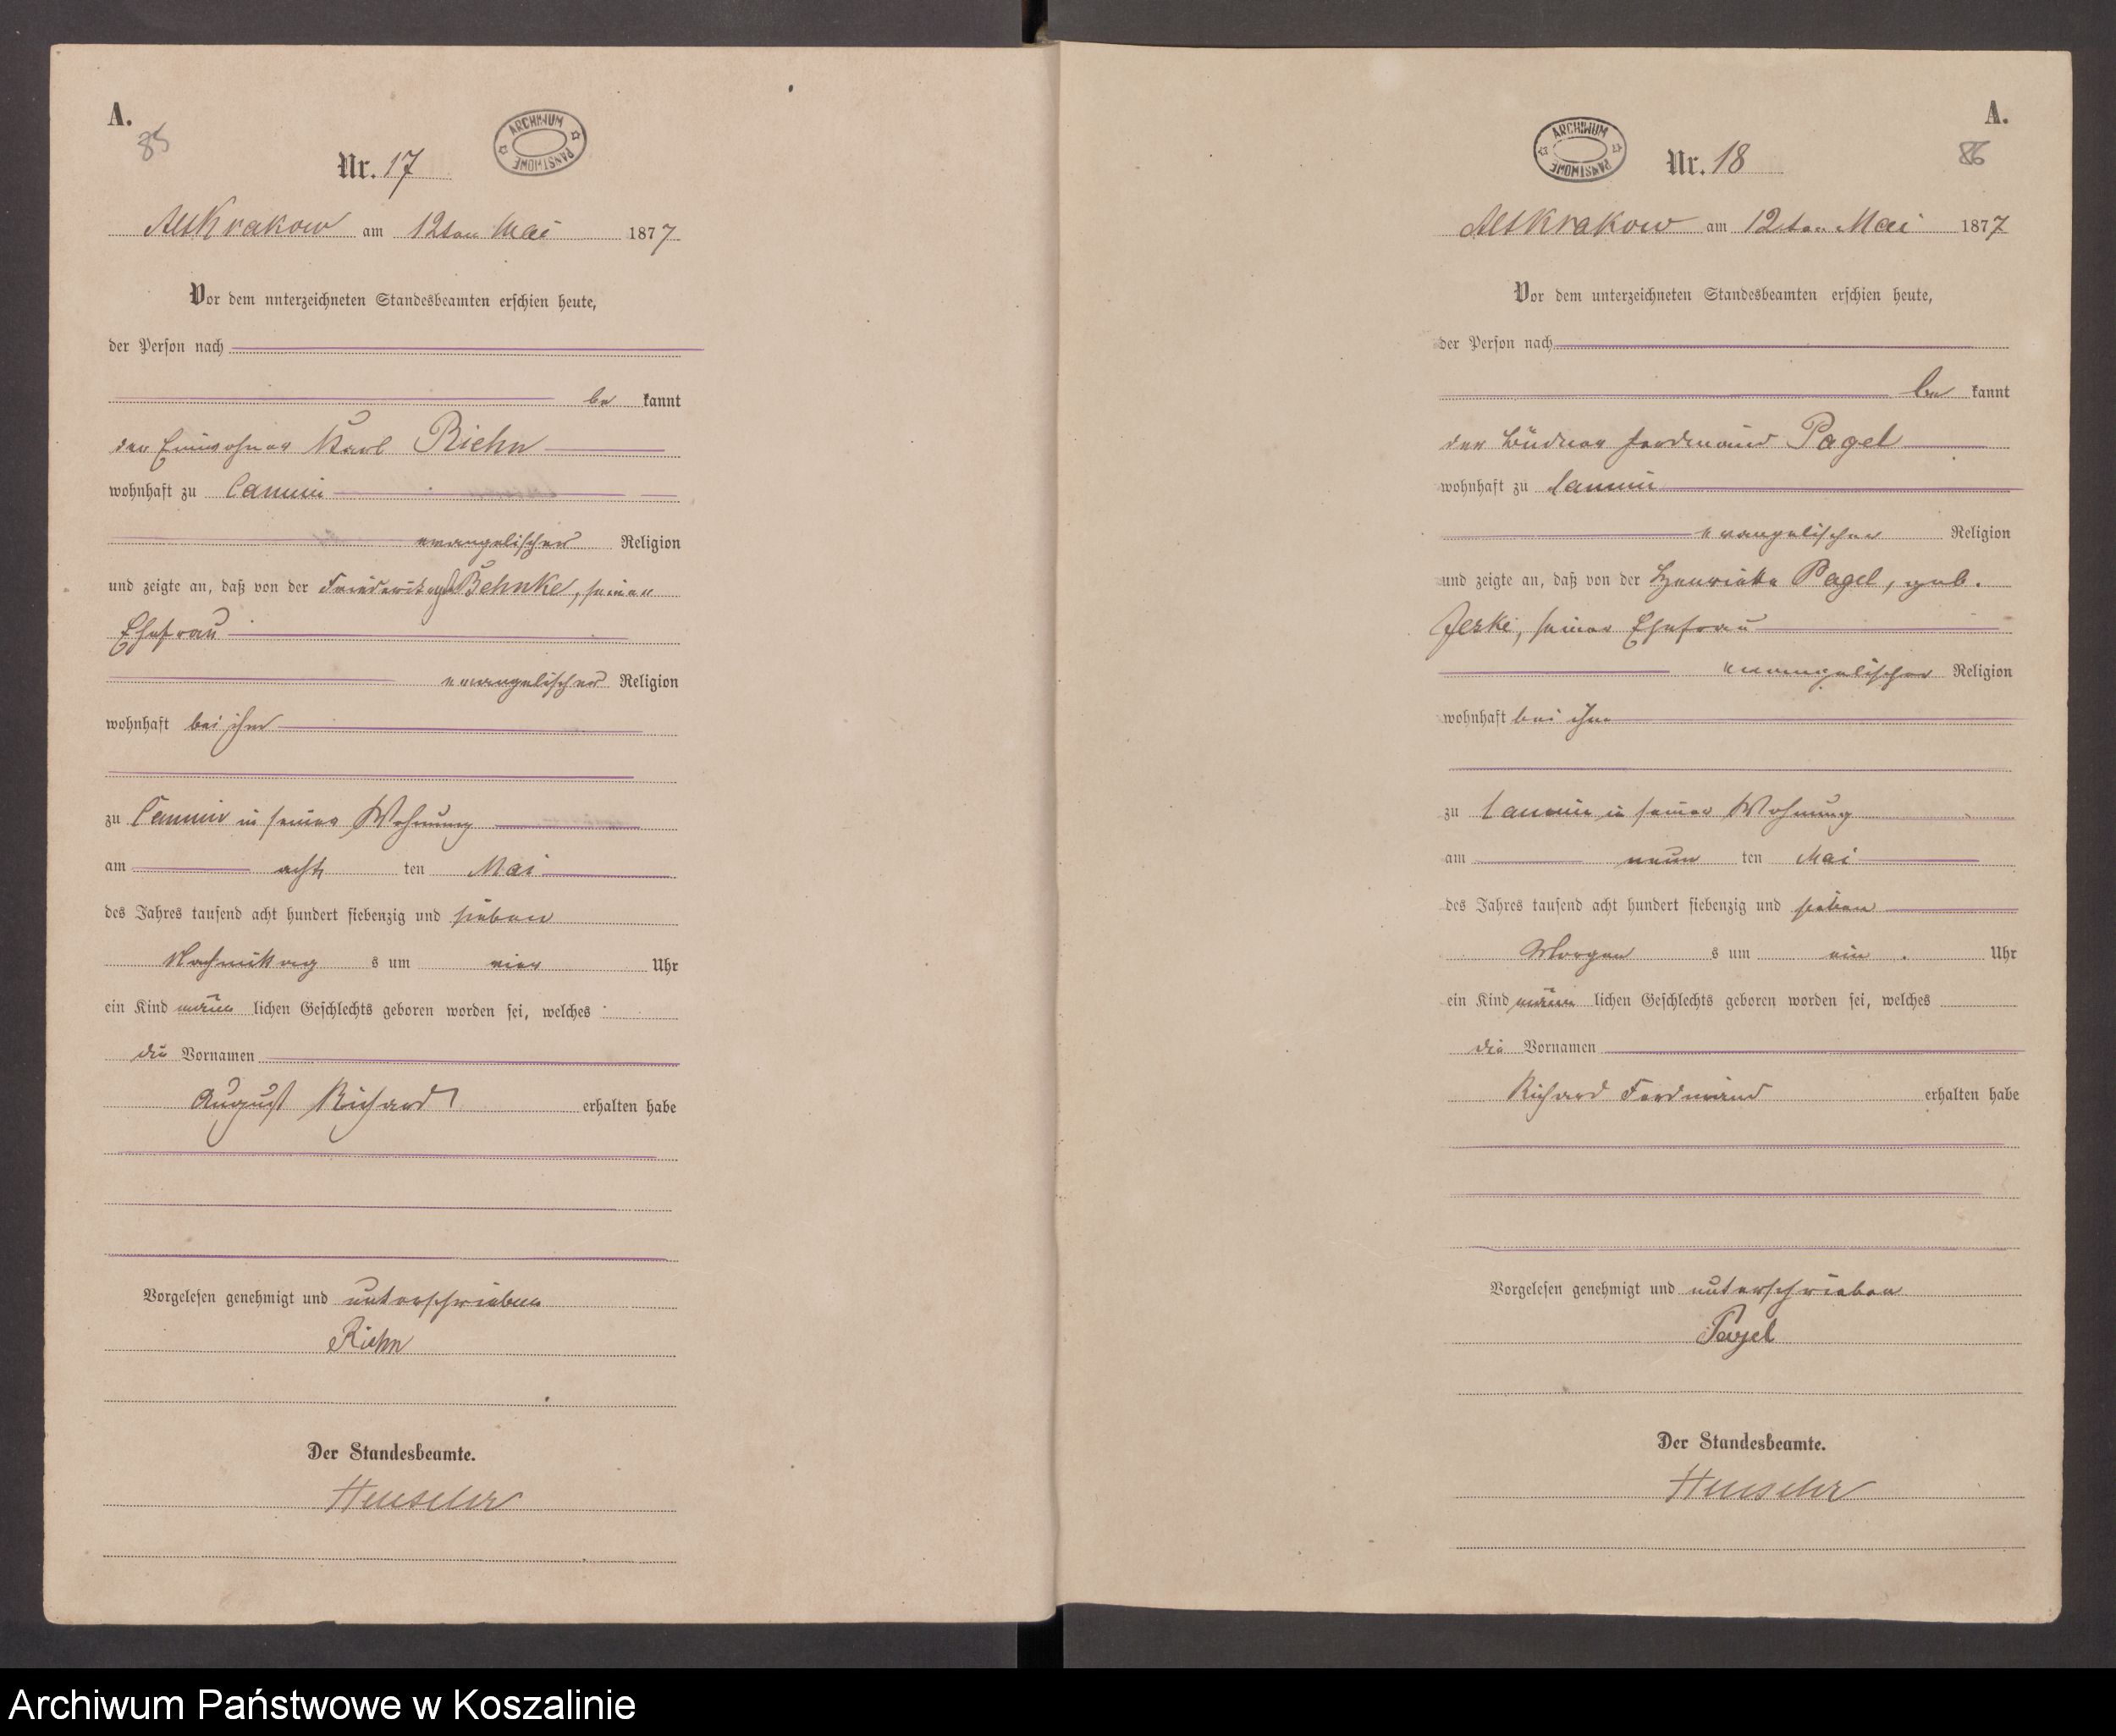 A.
85
ARCHIWUM PAŃSTWOWE
Nr. 17
AltKrakow am 12ten Mai 1877
Vor dem unterzeichneten Standesbeamten erschien heute,
der Person nach
be kannt
der Einwohner Karl Riehn
wohnhaft zu Cannin
evangelischer Religion
und zeigte an, daß von der Behnke, seiner
Ehefrau
evangelischer Religion
wohnhaft bei ihm
zu Cannin in seiner Wohnung
am acht ten Mai
des Jahres tausend acht hundert siebenzig und sieben
Nachmittag s um vier Uhr
ein Kind männ lichen Geschlechts geboren worden sei, welches
die Vornamen
August Richard erhalten habe
Vorgelesen genehmigt und unterschrieben
Riehn
Der Standesbeamte.
A.
86
ARCHIWUM PAŃSTWOWE
Nr. 18
AltKrakow am 12ten Mai 1877
Vor dem unterzeichneten Standesbeamten erschien heute,
der Person nach
be kannt
der Büdner Ferdinand Pagel
wohnhaft zu Cannin
evangelischer Religion
und zeigte an, daß von der Henriette Pagel, geb.
Jeske, seiner Ehefrau
evangelischer Religion
wohnhaft bei ihm
zu Cannin in seiner Wohnung
am neun ten Mai
des Jahres tausend acht hundert siebenzig und sieben
Morgen s um ein Uhr
ein Kind männ lichen Geschlechts geboren worden sei, welches
die Vornamen
Richard Ferdinand erhalten habe
Vorgelesen genehmigt und unterschrieben
Pagel
Der Standesbeamte.
Archiwum Państwowe w Koszalinie